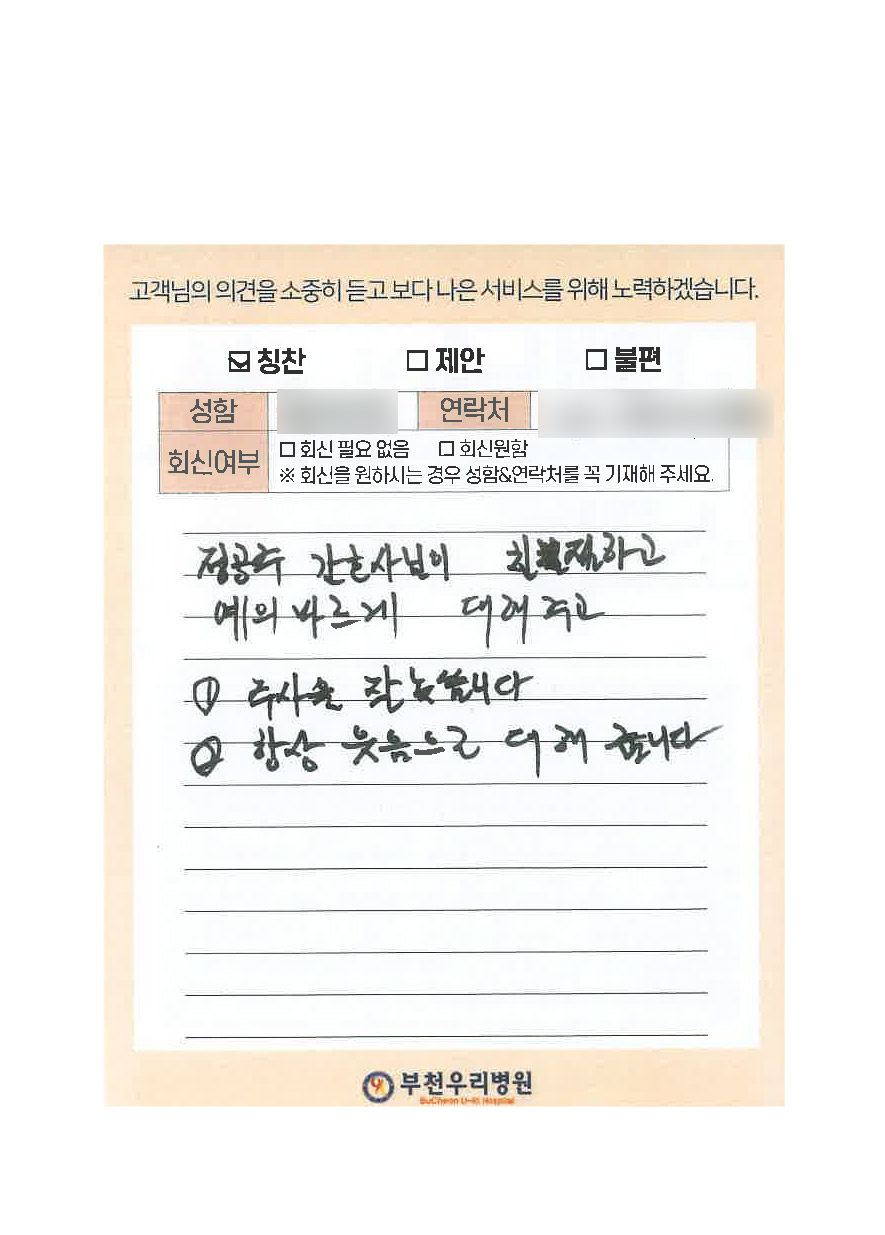 고객님의 의견을 소중히 듣고 보다 나은 서비스를 위해 노력하겠습니다.
☑ 칭찬 ☐ 제안 ☐ 불편
성함 연락처
회신여부 ☐ 회신 필요 없음 ☐ 회신원함
※ 회신을 원하시는 경우 성함&연락처를 꼭 기재해 주세요.
정공주 간호사님이 친절하고
예의 바르게 대해 주고
① 주사을 잘 놓씁니다
② 항상 웃음으로 대해 줍니다
부천우리병원
BuCheon U-Ri Hospital